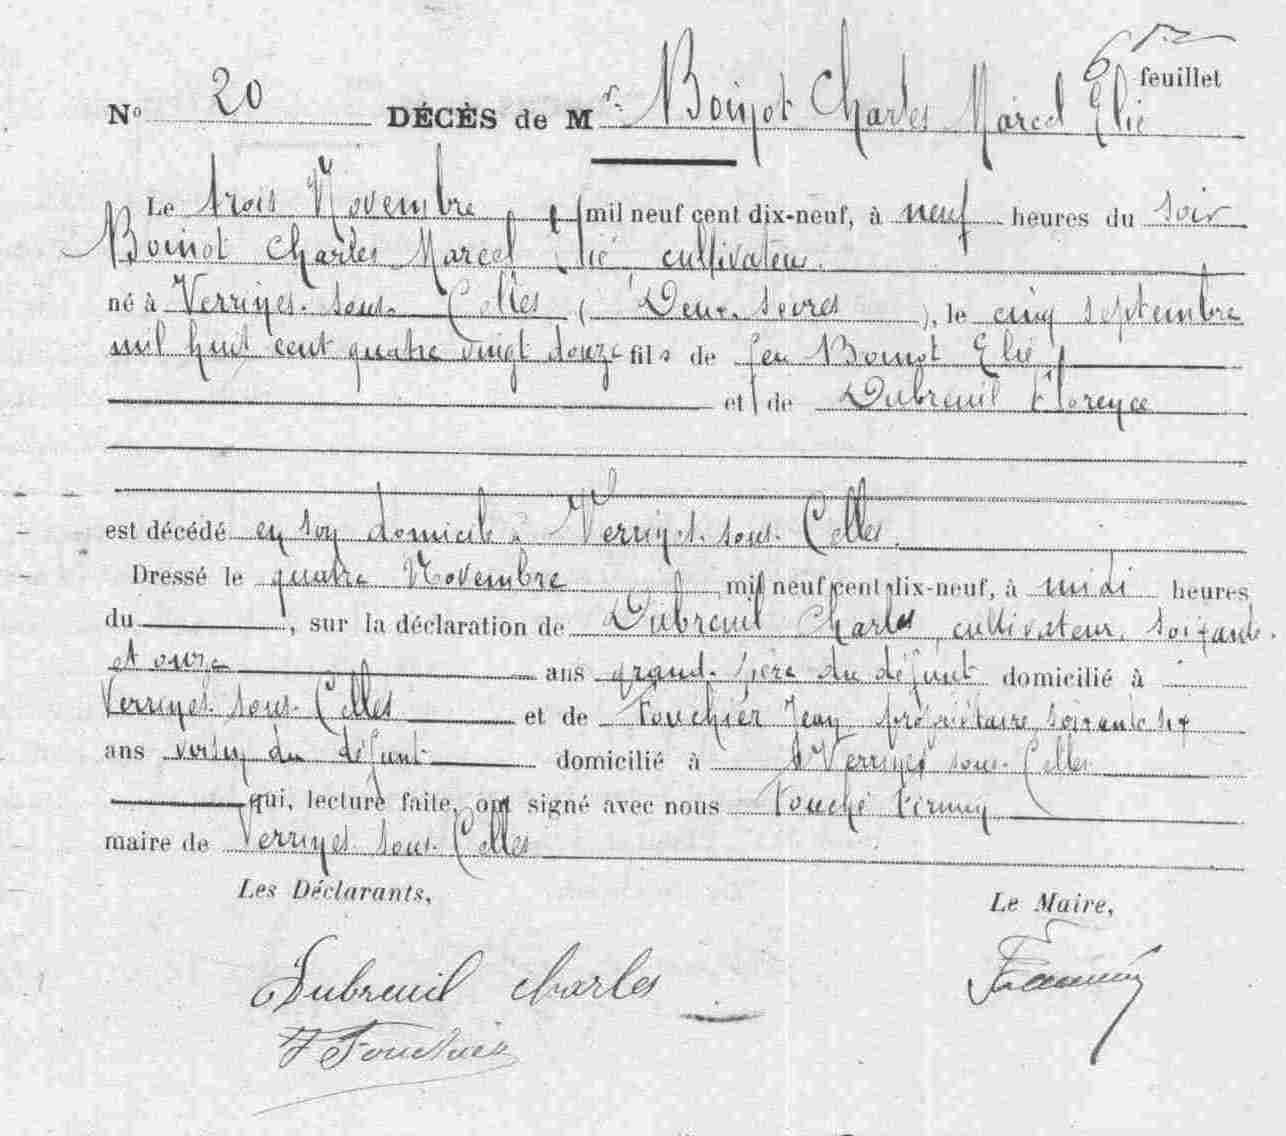 6 feuillet
No 20 DÉCÈS de Mr. Boinot Charles Marcel Elie
Le trois Novembre mil neuf cent dix-neuf, à neuf heures du soir
Boinot Charles Marcel Elie, cultivateur.
né à Verrines-sous-Celles (Deux-Sèvres), le cinq septembre
mil huit cent quatre vingt douze fils de feu Boinot Elie
et de Dubreuil Florence
est décédé en son domicile à Verrines-sous-Celles.
Dressé le quatre Novembre mil neuf cent dix-neuf, à midi heures
du, sur la déclaration de Dubreuil Charles, cultivateur, soixante
et onze ans grand-père du défunt domicilié à
Verrines-sous-Celles et de Fouchier Jean propriétaire soixante six
ans voisin du défunt domicilié à Verrines sous-Celles
qui, lecture faite, ont signé avec nous Touché Firmin
maire de Verrines-sous-Celles
Les Déclarants,
Le Maire,
Dubreuil charles
Fouchier